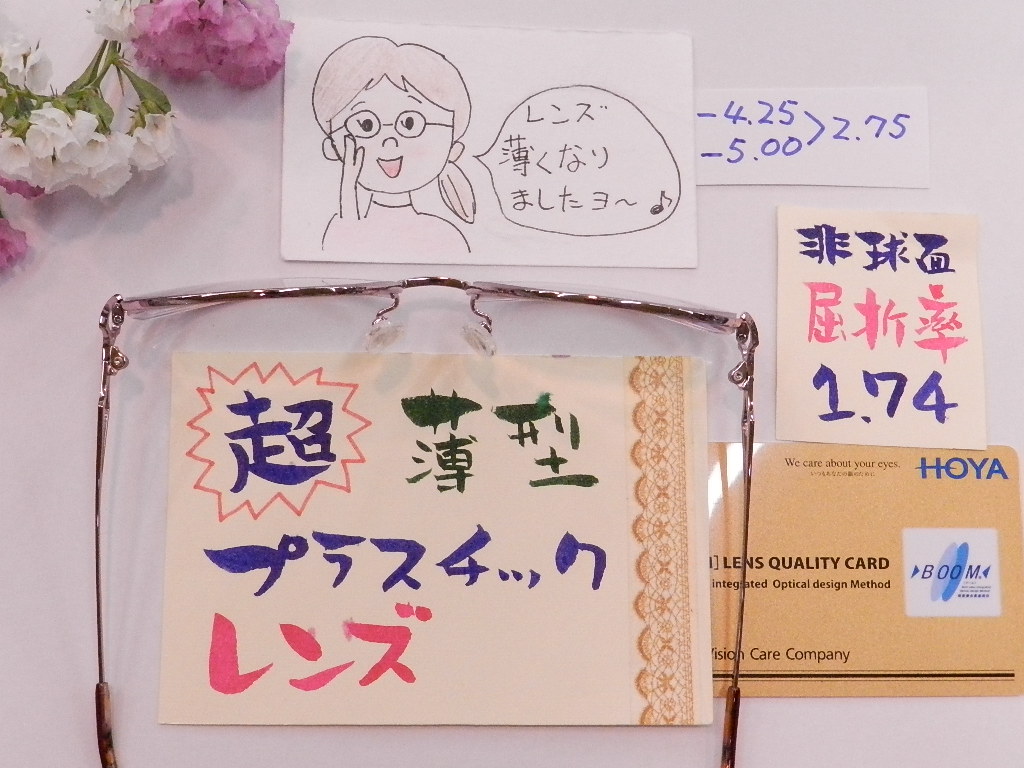 レンズ
薄くなり
ましたヨ～♪
-4.25
-5.00 > 2.75
非球面
屈折率
1.74
超 薄型
プラスチック
レンズ
We care about your eyes.
HOYA
LENS QUALITY CARD
integrated Optical design Method
BOOM
Vision Care Company